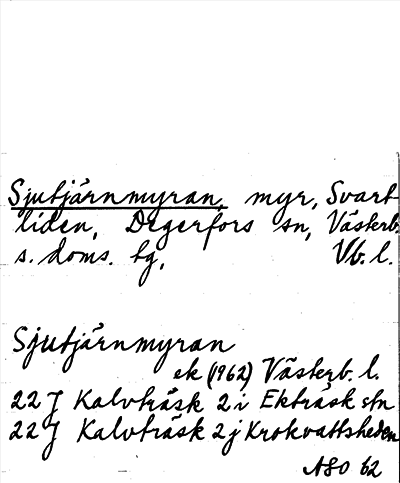 Sjutjärnmyran, myr, Svart-
liden, Degerfors sn, Västerb.
s. doms. tg, Vb. l.
Sjutjärnmyran
ek (1962) Västerb. l.
22 J Kalvträsk 2 i Ekträsk stn
22 J Kalvträsk 2 j Krokvattsheden
ASO 62